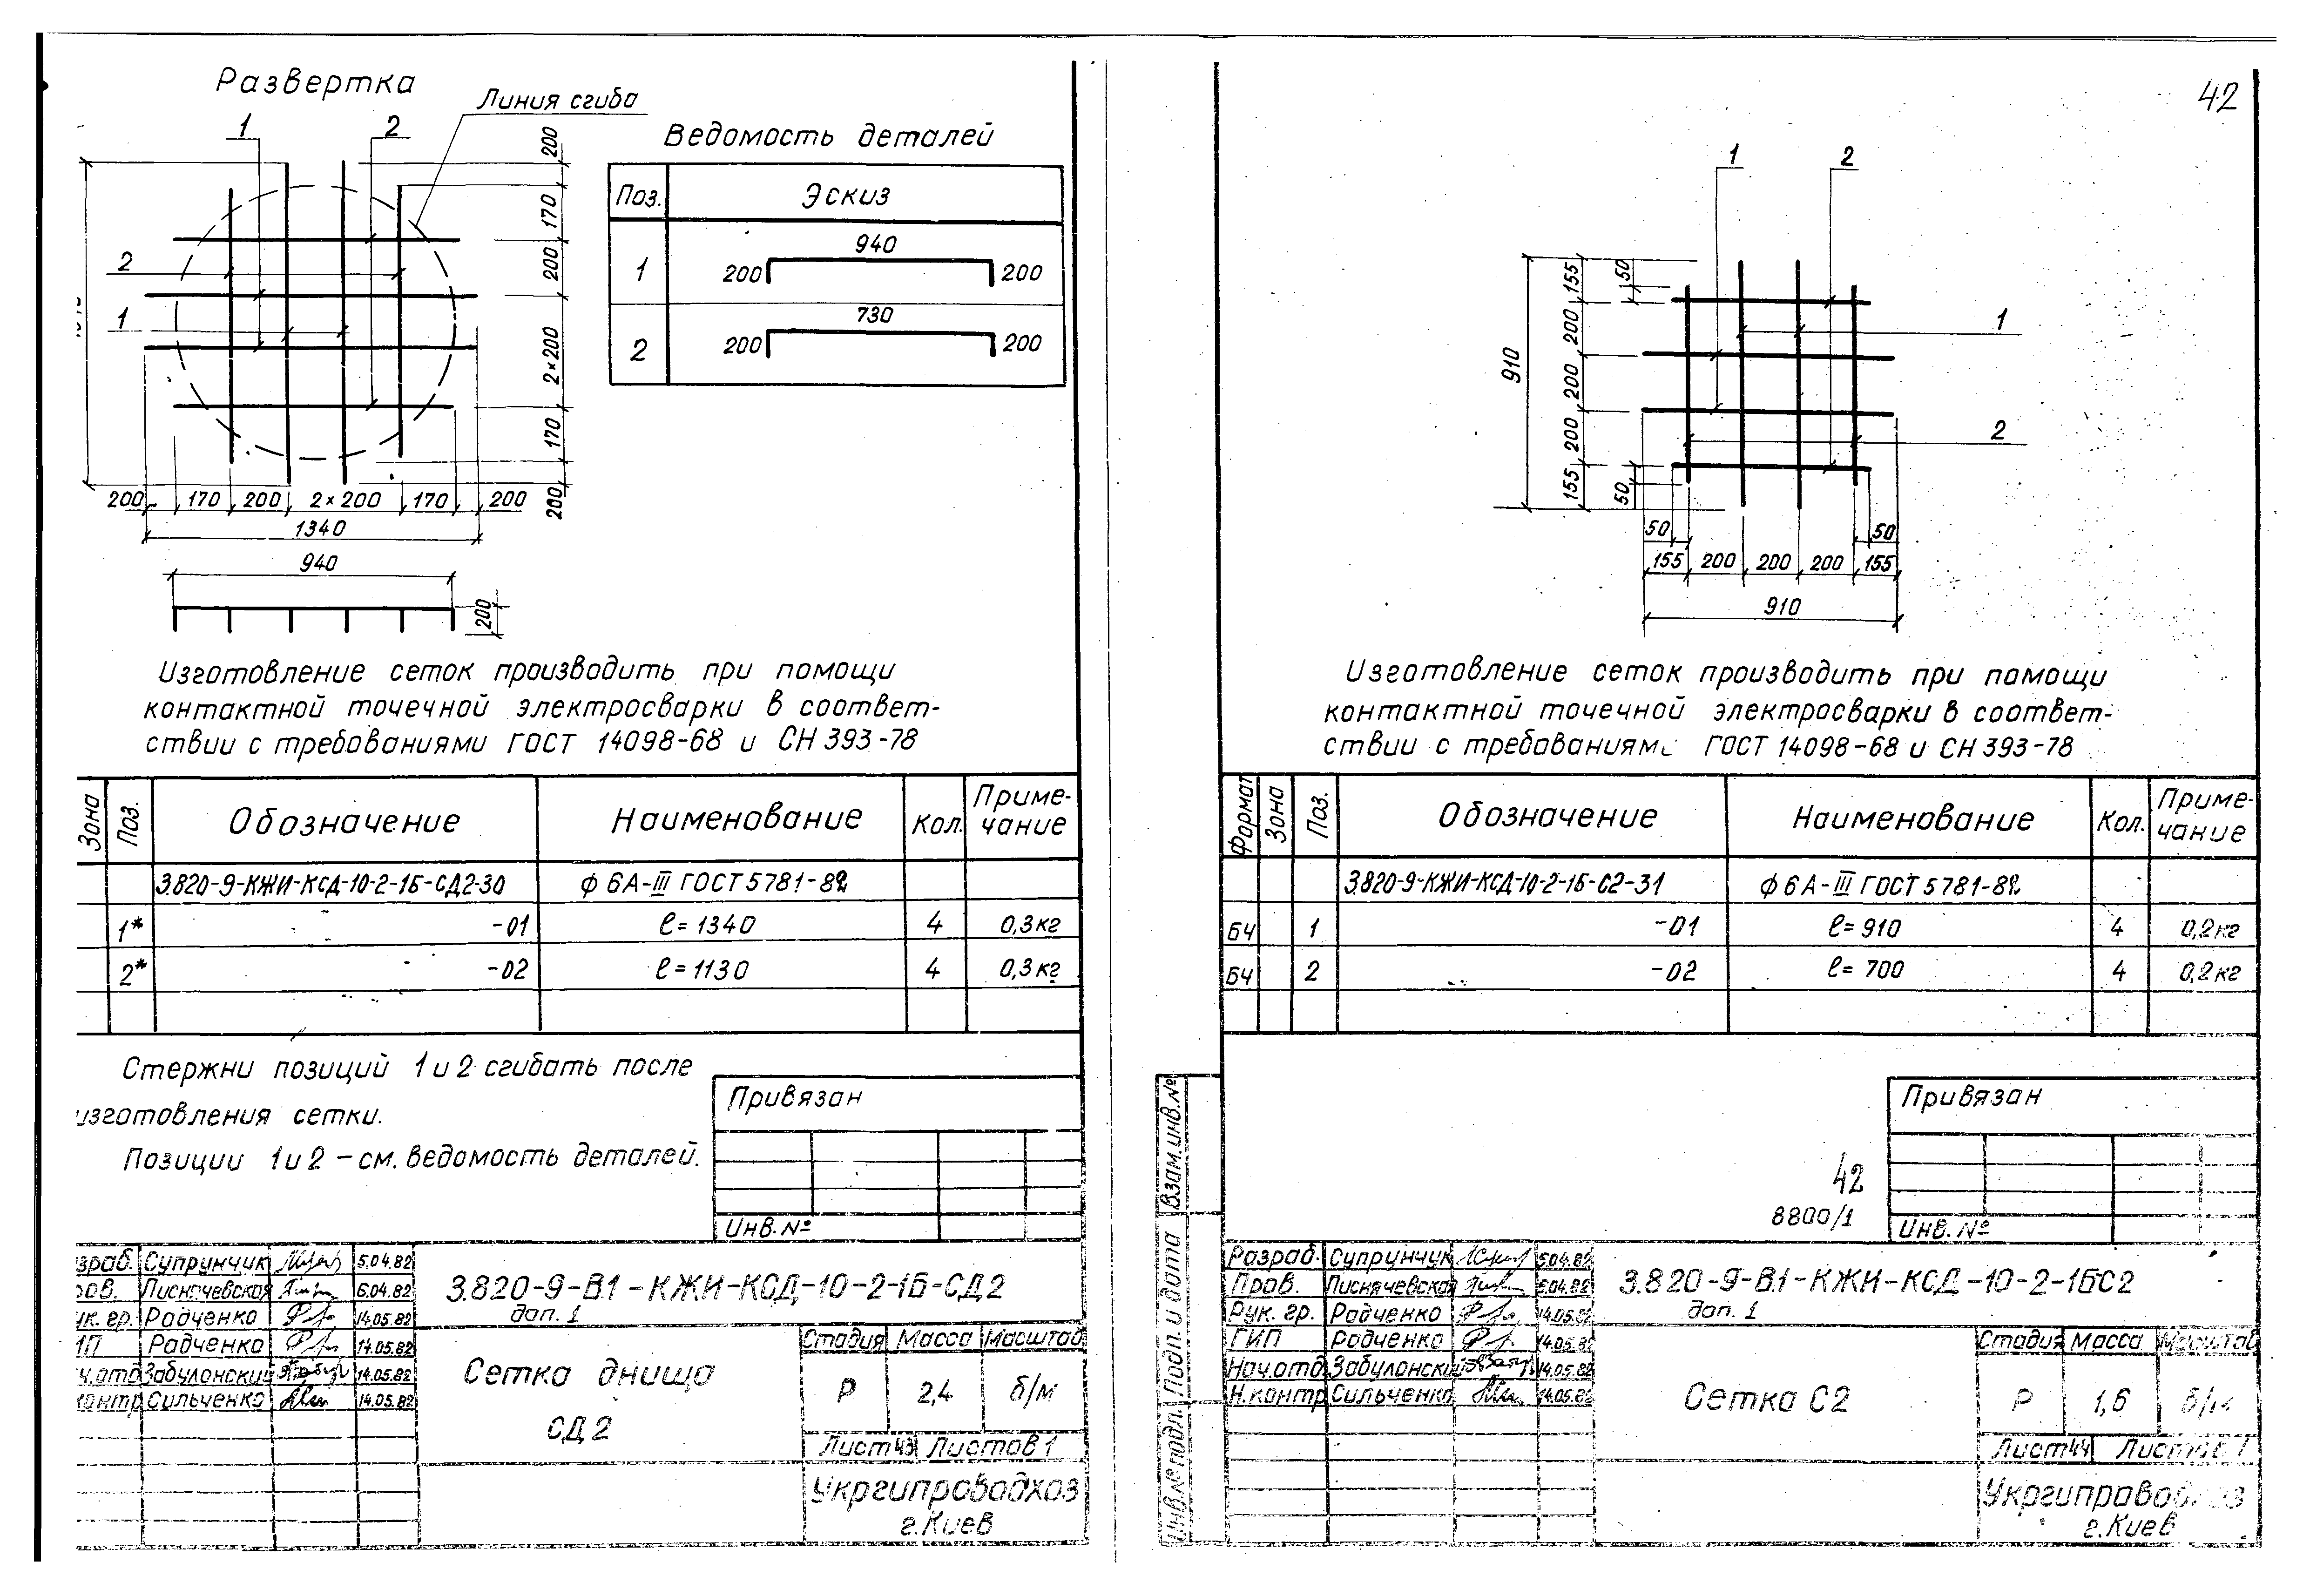 Развертка
Линия сгиба
1
2
2
1
200
170
200
2×200
170
200
200
170
200
2×200
170
200
1340
940
200
Ведомость деталей
Поз. Эскиз
1 200 940 200
2 200 730 200
Изготовление сеток производить при помощи
контактной точечной электросварки в соответ-
ствии с требованиями ГОСТ 14098-68 и СН 393-78
Зона Поз. Обозначение Наименование Кол. Приме-
чание
3.820-9-КЖИ-КСД-10-2-1Б-СД2-30 ф 6А-III ГОСТ 5781-82
1* -01 ℓ=1340 4 0,3кг
2* -02 ℓ=1130 4 0,3кг
Стержни позиций 1 и 2 сгибать после
изготовления сетки.
Позиции 1 и 2 – см. ведомость деталей.
Привязан
Инв. №
зраб. Супрунчик 5.04.82
ов. Лисничевская 6.04.82
ук. гр. Радченко 14.05.82
ИП Радченко 14.05.82
ч.отд Забулонский 14.05.82
контр Сильченко 14.05.82
3.820-9-В.1-КЖИ-КСД-10-2-1Б-СД2
доп. 1
Сетка днища
СД2
Стадия Масса Масштаб
Р 2,4 б/м
Лист 43 Листов 1
Укргипроводхоз
г. Киев
42
1
2
1
2
50
155
200
200
200
155
50
910
50
50
155 200 200 200 155
910
Изготовление сеток производить при помощи
контактной точечной электросварки в соответ-
ствии с требованиями ГОСТ 14098-68 и СН 393-78
Формат Зона Поз. Обозначение Наименование Кол. Приме-
чание
3.820-9-КЖИ-КСД-10-2-1Б-С2-31 ф 6А-III ГОСТ 5781-82
БЧ 1 -01 ℓ=910 4 0,2кг
БЧ 2 -02 ℓ=700 4 0,2кг
Привязан
Инв. №
42
8800/1
Взам. инв. №
Подп. и дата
Инв. № подл.
Разраб. Супрунчик 5.04.82
Пров. Лисничевская 6.04.82
Рук. гр. Радченко 14.05.82
ГИП Радченко 14.05.82
Нач.отд Забулонский 14.05.82
Н.контр Сильченко 14.05.82
3.820-9-В.1-КЖИ-КСД-10-2-1БС2
доп. 1
Сетка С2
Стадия Масса Масштаб
Р 1,6 б/м
Лист 44 Листов 1
Укргипроводхоз
г. Киев